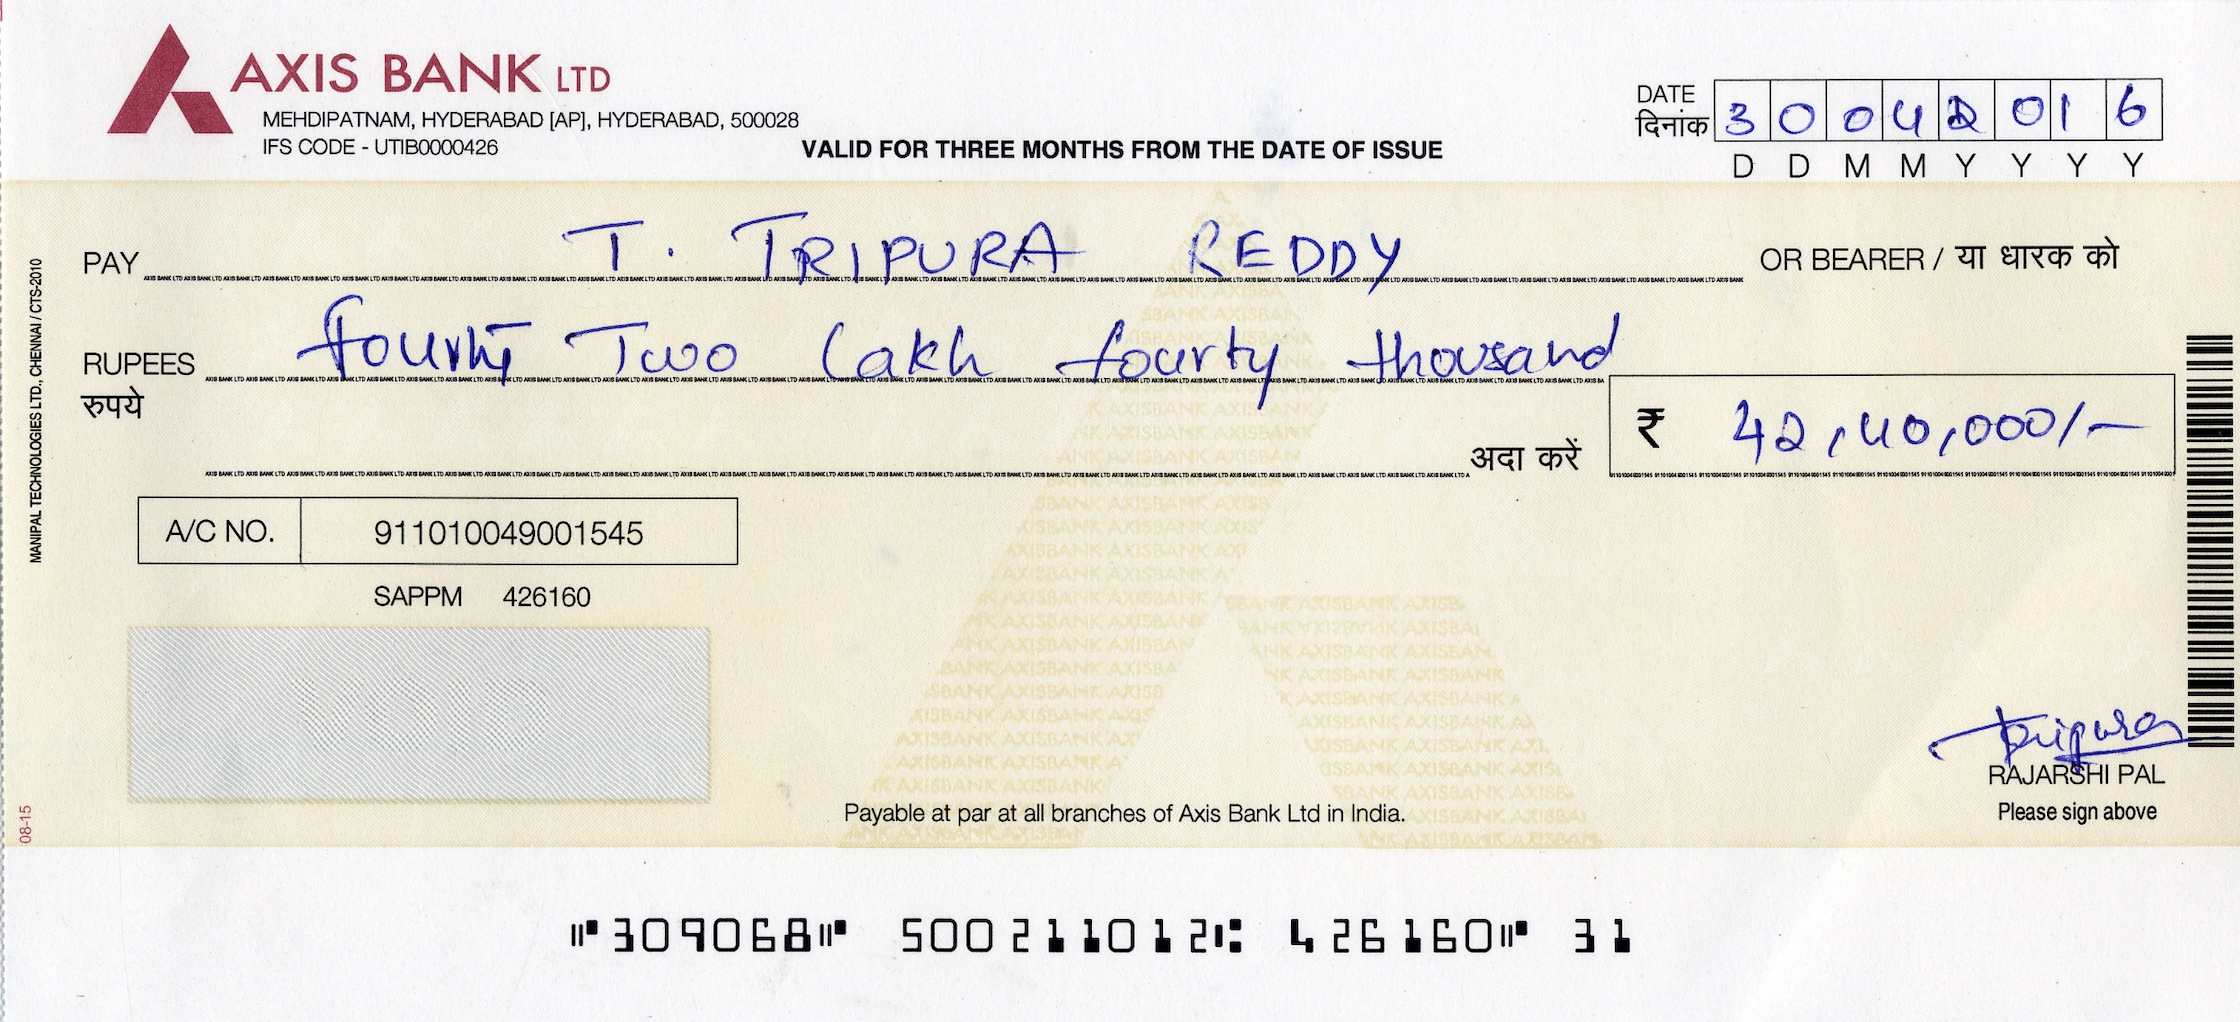 AXIS BANK LTD
MEHDIPATNAM, HYDERABAD [AP], HYDERABAD, 500028
IFS CODE - UTIB0000426
VALID FOR THREE MONTHS FROM THE DATE OF ISSUE
DATE
दिनांक
3 0 0 4 2 0 1 6
D D M M Y Y Y Y
PAY T. TRIPURA REDDY OR BEARER / या धारक को
RUPEES fourty Two Lakh fourty thousand
रुपये
अदा करें ₹ 42,40,000/-
A/C NO. 911010049001545
SAPPM 426160
Tripura
RAJARSHI PAL
Please sign above
Payable at par at all branches of Axis Bank Ltd in India.
MANIPAL TECHNOLOGIES LTD, CHENNAI / CTS-2010
08-15
⑈309068⑈ 500211012⑆ 426160⑈ 31